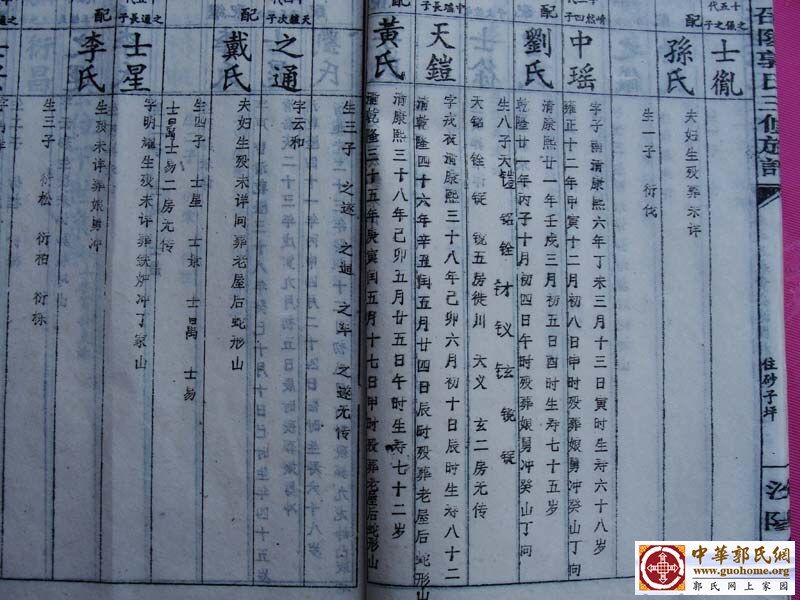 召陵郭氏三修族譜
住砂子坪
汾陽
士胤
配
孫氏
夫妇生殁葬未详
生一子 衍伐
中瑶
字子南清康熙六年丁未三月十三日寅时生寿六十八岁
雍正十二年甲寅十二月初八日申时殁葬娘舅冲癸山丁向
劉氏
清康熙廿一年壬戌三月初五日酉时生寿七十五岁
乾隆廿一年丙子十月初四日午时殁葬娘舅冲癸山丁向
生八子天铠 铭 铨 钗 锐 锭
天铭 铨 锭 锐五房徙川 天义 玄二房无传
中瑶長子
天鎧
字戎夜清康熙三十八年己卯六月初十日辰时生寿八十二
清乾隆四十六年辛丑闰五月廿四日辰时殁葬老屋后蛇形山
配
黃氏
清康熙三十八年己卯五月廿五日午时生寿七十二岁
清乾隆三十五年庚寅闰五月十七日申时殁葬老屋后蛇形山
生三子 之逐 之通 之车 之逐无传
天鎧次子
之通
字云和
配
戴氏
夫妇生殁未详同葬老屋后蛇形山
生四子 士星 士易
士易二房无传
之通長子
士星
字明耀生殁未详葬铁炉冲丁家山
配
李氏
生殁未详葬娘舅冲
生三子 衍松 衍柏 衍栋
中華郭氏網
www.guohome.org
郭氏网上家园